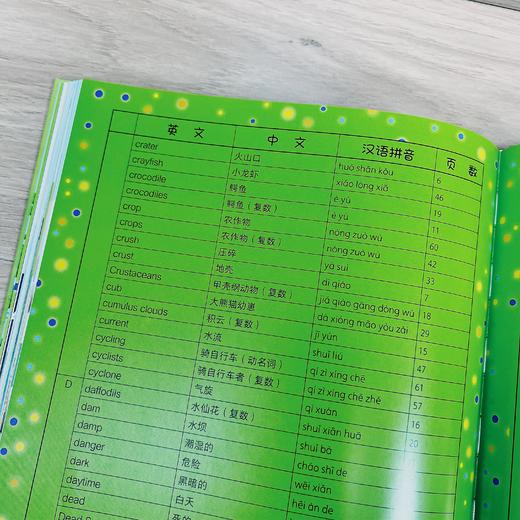 英 文 中 文 汉语拼音 页 数
crater 火山口 huǒ shān kǒu 6
crayfish 小龙虾 xiǎo lóng xiā 46
crocodile 鳄鱼 è yú 19
crocodiles 鳄鱼（复数） è yú 11
crop 农作物 nóng zuò wù 60
crops 农作物（复数） nóng zuò wù 42
crush 压碎 yā suì 33
crust 地壳 dì qiào 7
Crustaceans 甲壳纲动物（复数） jiǎ qiào gāng dòng wù 18
cub 大熊猫幼崽 dà xióng māo yòu zǎi 29
cumulus clouds 积云（复数） jī yún 15
current 水流 shuǐ liú 47
cycling 骑自行车（动名词） qí zì xíng chē 61
cyclists 骑自行车者（复数） qí zì xíng chē zhě 57
cyclone 气旋 qì xuán 16
D daffodils 水仙花（复数） shuǐ xiān huā 20
dam 水坝 shuǐ bà
damp 潮湿的 cháo shī de
danger 危险 wēi xiǎn
dark 黑暗的 hēi àn de
daytime 白天
dead 死的
Dead